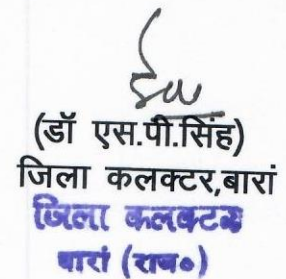 (डॉ एस.पी.सिंह)
जिला कलक्टर,बारां
जिला कलक्टर
बारां (राज०)